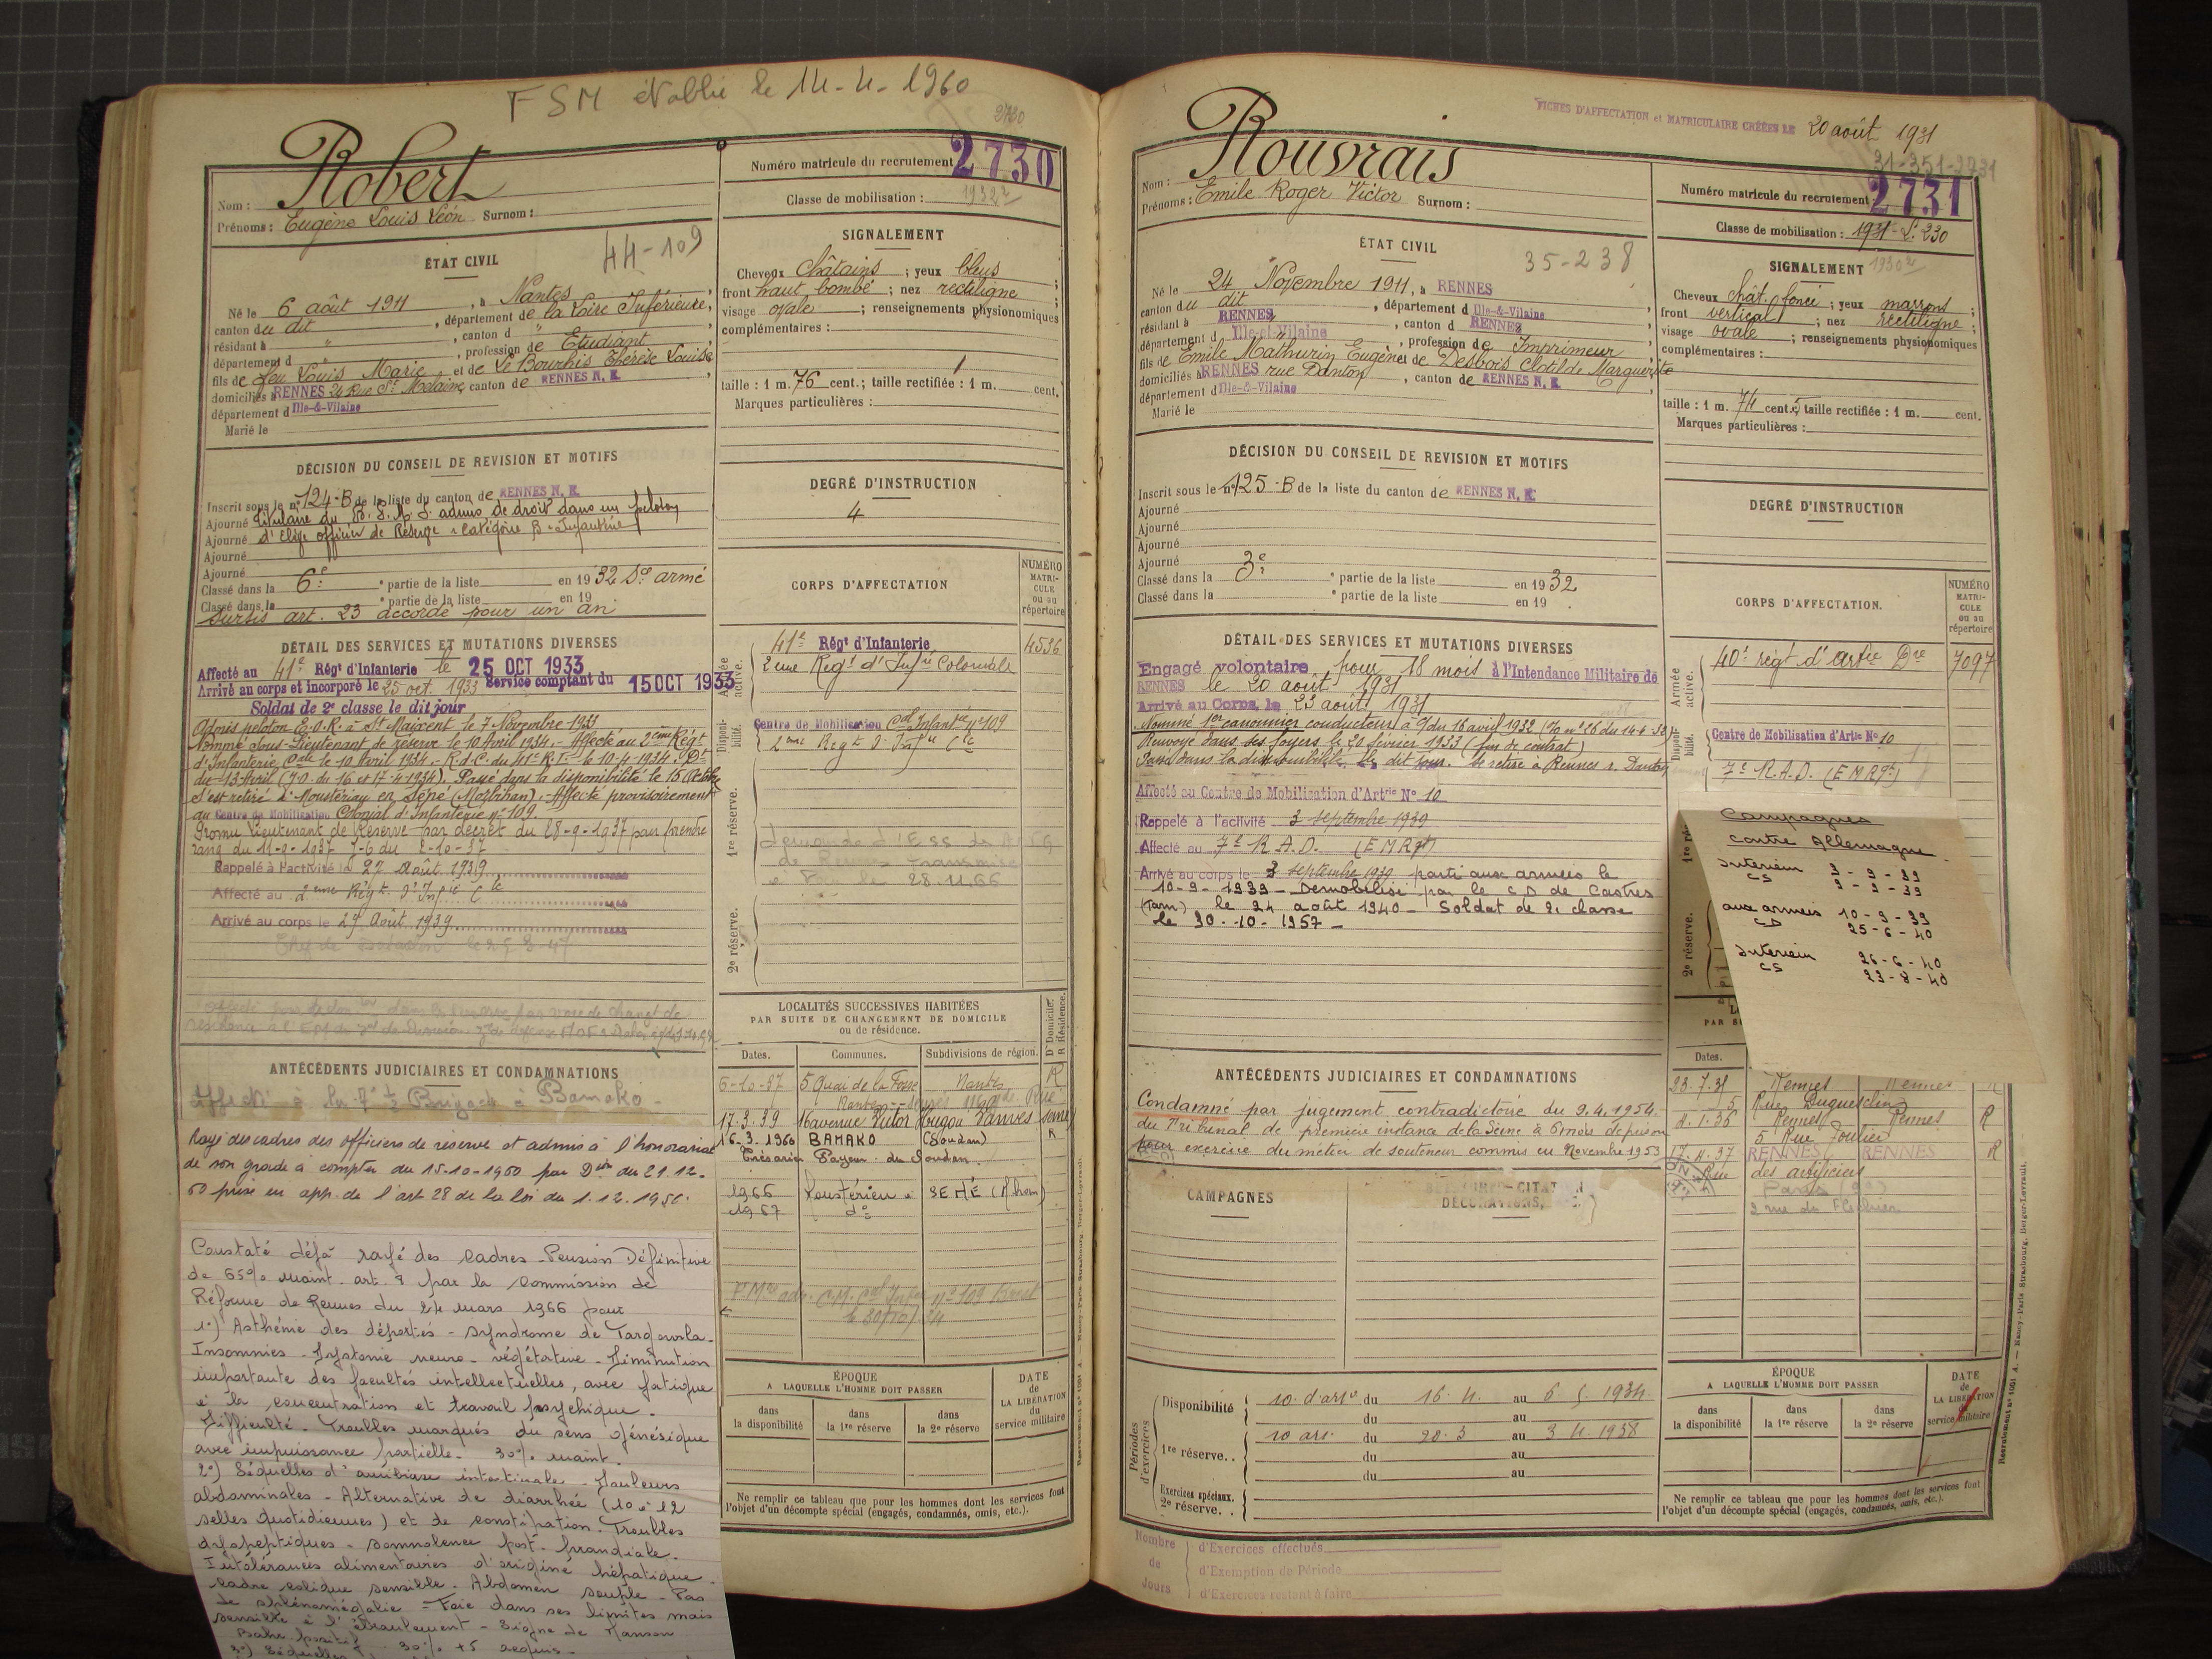 FSM établie le 14-4-1960
2730
Robert
Nom :
Prénoms : Eugène Louis Léon Surnom :
44-109
ÉTAT CIVIL
Né le 6 août 1911, à Nantes,
canton du dit, département de la Loire Inférieure,
résidant à " , canton d "
département d " , profession de Etudiant,
fils de feu Louis Marie et de Le Bourhis Thérèse Louise
domiciliés à RENNES 24 Rue St Melaine, canton de RENNES N. E.,
département d Ille-&-Vilaine
Marié le
DÉCISION DU CONSEIL DE REVISION ET MOTIFS
Inscrit sous le n° 124-B de la liste du canton de RENNES N. E.
Ajourné titulaire du B. P. M. S. admis de droit dans un peloton
Ajourné d'Elève officier de Réserve - Catégorie B - Infanterie
Ajourné
Ajourné
Classé dans la 6e partie de la liste en 1932 Sce armé
Classé dans la e partie de la liste en 19
Sursis art. 23 accordé pour un an
DÉTAIL DES SERVICES ET MUTATIONS DIVERSES
Affecté au 41e Régt d'Infanterie le 25 OCT 1933
Arrivé au corps et incorporé le 25 oct. 1933 Service comptant du 15 OCT 1933
Soldat de 2e classe le dit jour
Admis peloton E.O.R. à St Maixent le 7 Novembre 1933
Nommé Sous-Lieutenant de réserve le 10 Avril 1934. - Affecté au 2ème Régt
d'Infanterie Cale le 10 Avril 1934. R.d.C. du 41e R.I. le 10-4-1934. Dt
du 13 Avril (J.O. du 16 et 17-4-1934). Passé dans la disponibilité le 15 Octobre
S'est retiré à Moustérian en Séné (Morbihan). - Affecté provisoirement
au Centre de Mobilisation Colonial d'Infanterie n° 109.
Promu Lieutenant de Réserve par décret du 28-9-1937 pour prendre
rang du 11-9-1937 J-O du 2-10-37
Rappelé à l'activité le 27 Août 1939
Affecté au 2eme Régt d'Infie Cle
Arrivé au corps le 29 Août 1939
ANTÉCÉDENTS JUDICIAIRES ET CONDAMNATIONS
Affecté à la 7e Brigade à Bamako -
Rayé des cadres des officiers de réserve et admis à l'honorariat
de son grade à compter du 15-10-1960 par Don du 21.12.
60 prise en app. de l'art 28 de la loi du 1.12.1956.
Constaté déjà rayé des cadres - Pension Définitive
de 65% maint. art. 8 par la Commission de
Réforme de Rennes du 24 mars 1966 pour
1°) Asthénie des déportés - syndrome de Targowla.
Insomnies - Dystonie neuro-végétative - Diminution
importante des facultés intellectuelles, avec fatigue
à la concentration et travail psychique.
Difficulté. Troubles marqués du sens génésique
avec impuissance partielle - 30% maint.
2°) Séquelles d'amibiase intestinale - Douleurs
abdominales - Alternative de diarrhée (10 à 12
selles quotidiennes) et de constipation. Troubles
dyspeptiques - somnolence post-prandiale.
Intolérances alimentaires d'origine hépatique.
Cadre colique sensible. Abdomen souple - Pas
de splénomégalie = Foie dans ses limites mais
sensible à l'ébranlement - Signe de Manson
Bahr positif 30% +5 acquis -
3°) Séquelles
Numéro matricule du recrutement : 2730
Classe de mobilisation : 1932
SIGNALEMENT
Cheveux châtains ; yeux bleus ;
front haut bombé ; nez rectiligne ;
visage ovale ; renseignements physionomiques
complémentaires :
taille : 1 m. 76 cent.; taille rectifiée : 1 m. cent.
Marques particulières :
DEGRÉ D'INSTRUCTION
4
CORPS D'AFFECTATION
NUMÉRO MATRI-CULE ou au répertoire
Armée active.
41e Régt d'Infanterie 4536
2eme Regt d'Infie Coloniale
Disponi-bilité.
Centre de Mobilisation Cal Infanterie n° 109
2eme Regt d'Infie Cle
1re réserve.
2e réserve.
LOCALITÉS SUCCESSIVES HABITÉES
PAR SUITE DE CHANGEMENT DE DOMICILE
ou de résidence.
D Domicile. R Résidence.
Dates. Communes. Subdivisions de région.
6-10-37 5 Quai de la Fosse Nantes R
17.3.39 16 avenue Victor Hugo Vanves Seine
16-3-1960 BAMAKO (Soudan) R
Trésorier Payeur du Soudan.
1966 Moustérian à SÉNÉ (Mhan)
1967 do
F. Mre adr. C.M. Cal Infie n° 109 Brest
le 30/10/34
ÉPOQUE
A LAQUELLE L'HOMME DOIT PASSER
dans la disponibilité
dans la 1re réserve
dans la 2e réserve
DATE de LA LIBÉRATION du service militaire
Ne remplir ce tableau que pour les hommes dont les services font
l'objet d'un décompte spécial (engagés, condamnés, omis, etc.).
FICHES D'AFFECTATION et MATRICULAIRE CRÉÉES LE 20 août 1931
31-351-2731
Rouvrais
Nom :
Prénoms : Emile Roger Victor Surnom :
35-238
ÉTAT CIVIL
Né le 24 Novembre 1911, à RENNES
canton du dit, département d Ille-&-Vilaine
résidant à RENNES, canton d RENNES
département d Ille-et-Vilaine, profession de Imprimeur,
fils de Emile Mathurin Eugène et de Desbois Clotilde Marguerite
domiciliés à RENNES rue Danton, canton de RENNES N. E.
département d Ille-&-Vilaine
Marié le
DÉCISION DU CONSEIL DE REVISION ET MOTIFS
Inscrit sous le n° 125-B de la liste du canton de RENNES N. E.
Ajourné
Ajourné
Ajourné
Ajourné
Classé dans la 3e partie de la liste en 1932
Classé dans la e partie de la liste en 19 .
DÉTAIL DES SERVICES ET MUTATIONS DIVERSES
Engagé volontaire pour 18 mois à l'Intendance Militaire de
RENNES le 20 août 1931
Arrivé au Corps, le 23 août 1931
Nommé 1er canonnier conducteur à c/du 16 avril 1932 (O/n n° 26 du 14-4-32)
Renvoyé dans ses foyers le 20 février 1933 (fin de contrat)
Passé dans la disponibilité le dit jour. Se retire à Rennes r. Danton
Affecté au Centre de Mobilisation d'Artrie N° 10
Rappelé à l'activité 3 septembre 1939
Affecté au 7e R.A.D. (EMRgt)
Arrivé au corps le 3 septembre 1939 parti aux armées le
10-9-1939 - Démobilisé par le CD de Castres
(Tarn) le 24 août 1940 - Soldat de 2e classe
le 30-10-1957 -
ANTÉCÉDENTS JUDICIAIRES ET CONDAMNATIONS
Condamné par jugement contradictoire du 9.4.1954
du Tribunal de première instance de la Seine à 6 mois de prison
pour exercice du métier de souteneur commis en Novembre 1953
CAMPAGNES
CITATION
DÉCORATIONS,
Périodes d'exercices
Disponibilité 10 d'artie du 16.4. au 6.5.1934.
du au
1re réserve.. 10 art. du 28.3 au 3 4.1938
du au
du au
Exercices spéciaux.
2e réserve. .
Nombre de Jours
d'Exercices effectués
d'Exemption de Période
d'Exercices restant à faire
Numéro matricule du recrutement : 2731
Classe de mobilisation : 1931 S. 230
SIGNALEMENT 1930
Cheveux chât. foncé ; yeux marrons ;
front vertical ; nez rectiligne ;
visage ovale ; renseignements physionomiques
complémentaires :
taille : 1 m. 74 cent.5; taille rectifiée : 1 m. cent.
Marques particulières :
DEGRÉ D'INSTRUCTION
CORPS D'AFFECTATION.
NUMÉRO MATRI-CULE ou au répertoire
Armée active.
40e régt d'artie Dre 7097
Disponi-bilité.
Centre de Mobilisation d'Artie N° 10
7e R.A.D. (EMRgt)
1re ré
2e réserve.
Campagnes
contre Allemagne.
Intérieur 3-9-39
CS 9-9-39
aux armées 10-9-39
CD 25-6-40
Intérieur 26-6-40
CS 23-8-40
PAR SU
Dates.
23.7.31 Rennes Rennes R
5 Rue Duguesclin
4.1.36 Rennes Rennes R
5 Rue Toullier
17.4.37 RENNES RENNES R
Rue des artificiers
Paris (9e)
2 rue du Fléchier
ÉPOQUE
A LAQUELLE L'HOMME DOIT PASSER
dans la disponibilité
dans la 1re réserve
dans la 2e réserve
DATE de LA LIBÉRATION du service militaire
Ne remplir ce tableau que pour les hommes dont les services font
l'objet d'un décompte spécial (engagés, condamnés, omis, etc.).
Recrutement n° 1051 A. — Nancy-Paris-Strasbourg, Berger-Levrault.